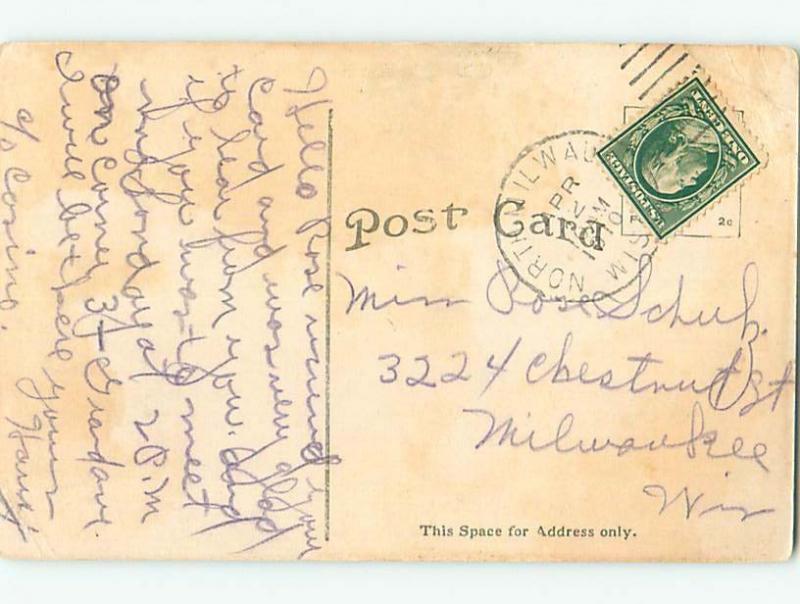 Hello Rose received your
card and was very glad
to hear from you. and
if you want to meet
me Sunday at 2 P.M
on corner 3 + Grand ave.
I will be there yours
Hans
c/o Casino.
Post Card
NORTH MILWAU WIS
APR
V
AM
1910
UNITED
U.S. POSTAGE
2c
Miss Rose Schuh.
3224 Chestnut St
Milwaukee
Wis
This Space for Address only.